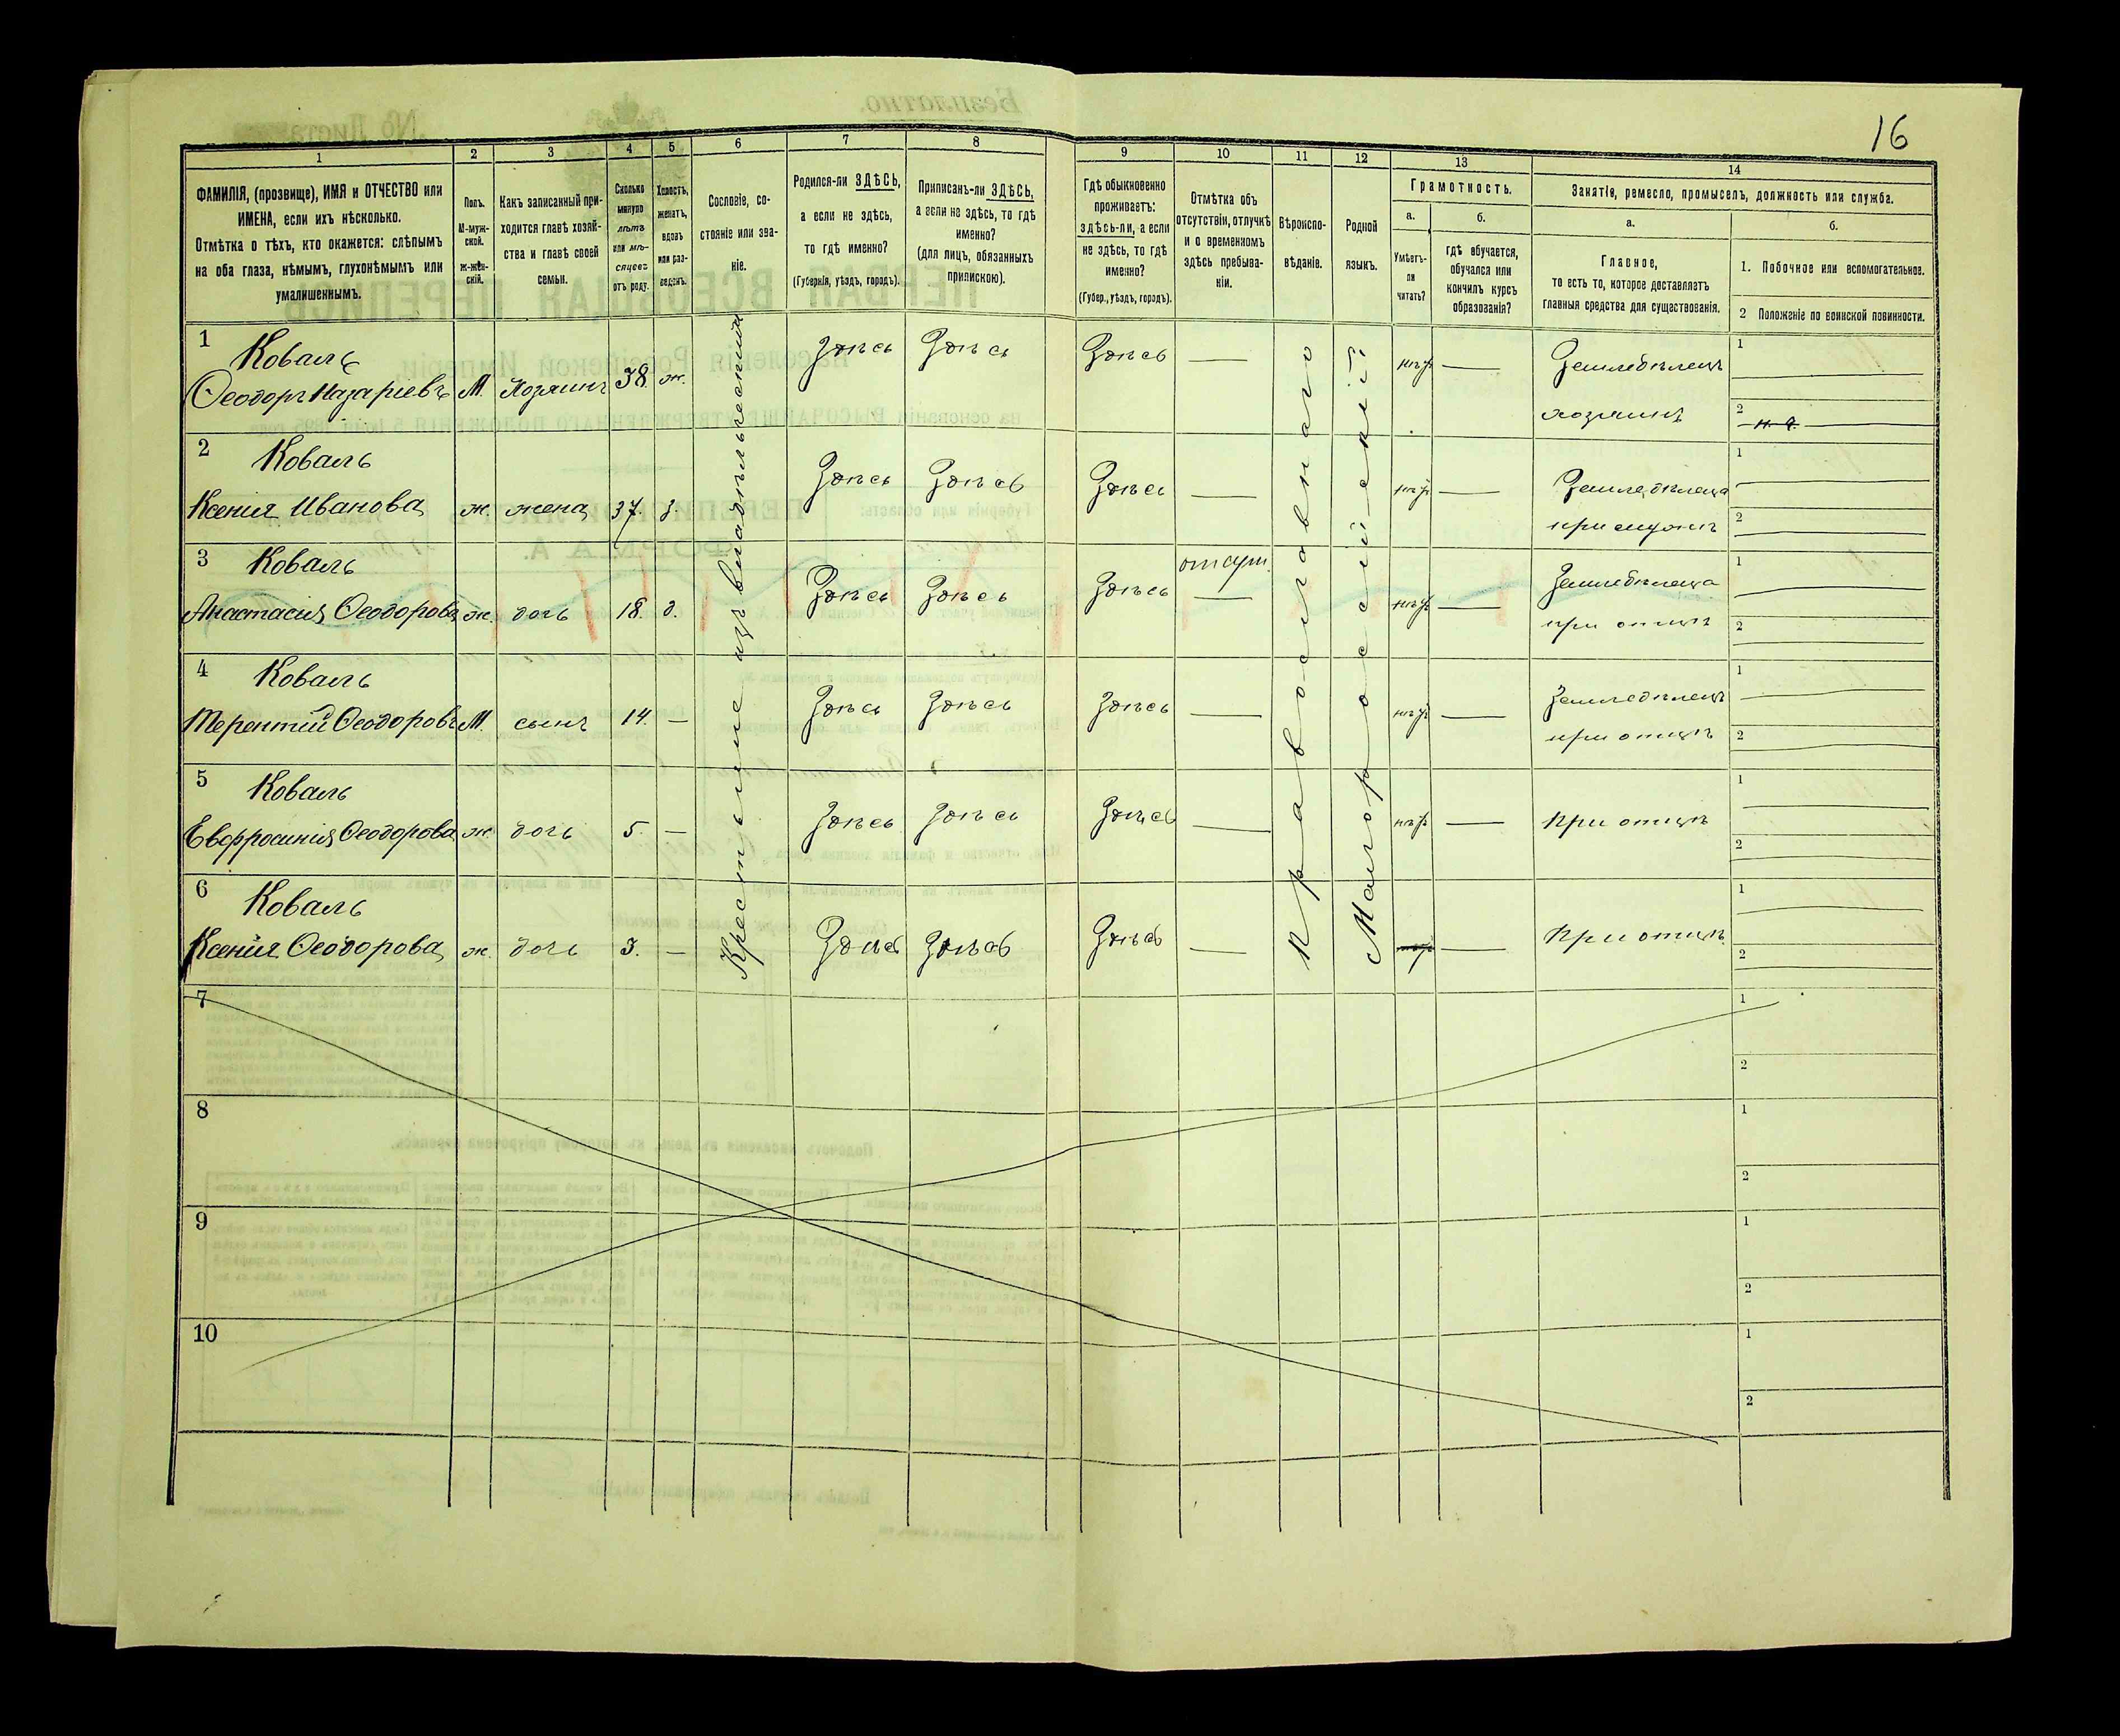 16
1
2
3
4
5
6
7
8
9
10
11
12
13
14
ФАМИЛІЯ, (прозвище), ИМЯ и ОТЧЕСТВО или
ИМЕНА, если ихъ нѣсколько.
Отмѣтка о тѣхъ, кто окажется: слѣпымъ
на оба глаза, нѣмымъ, глухонѣмымъ или
умалишеннымъ.
Полъ.
М-муж-
ской.
Ж-жен-
скій.
Какъ записанный при-
ходится главѣ хозяй-
ства и главѣ своей
семьи.
Сколько
минуло
лѣтъ
или мѣ-
сяцевъ
отъ роду.
Холостъ,
женатъ,
вдовъ
или раз-
веденъ.
Сословіе, со-
стояніе или зва-
ніе.
Родился-ли ЗДѢСЬ,
а если не здѣсь,
то гдѣ именно?
(Губернія, уѣздъ, городъ).
Приписанъ-ли ЗДѢСЬ,
а если не здѣсь, то гдѣ
именно?
(для лицъ, обязанныхъ
припискою).
Гдѣ обыкновенно
проживаетъ:
здѣсь-ли, а если
не здѣсь, то гдѣ
именно?
(Губер., уѣздъ, городъ).
Отмѣтка объ
отсутствіи, отлучкѣ
и о временномъ
здѣсь пребыва-
ніи.
Вѣроиспо-
вѣданіе.
Родной
языкъ.
Грамотность.
а.
Умѣетъ-
ли
читать?
б.
гдѣ обучается,
обучался или
кончилъ курсъ
образованія?
Занятіе, ремесло, промыселъ, должность или служба.
а.
Главное,
то есть то, которое доставляетъ
главныя средства для существованія.
б.
1. Побочное или вспомогательное.
2 Положеніе по воинской повинности.
Крестьяне изъ владѣльческихъ
Православнаго
Малороссійскій
1
Коваль
Ѳеодоръ Назаріевъ М. Хозяинъ 38. ж. Здѣсь Здѣсь Здѣсь — нѣтъ — Земледѣлецъ
хозяинъ
1
2
2
Коваль
Ксенія Иванова ж. жена 37. з. Здѣсь Здѣсь Здѣсь — нѣтъ — Земледѣлица
при мужѣ
1
2
3
Коваль
отсут.
Анастасія Ѳеодорова ж. дочь 18. д. Здѣсь Здѣсь Здѣсь — нѣтъ — Земледѣлица
при отцѣ
1
2
4
Коваль
Терентій Ѳеодоровъ М. сынъ 14. — Здѣсь Здѣсь Здѣсь — нѣтъ — Земледѣлецъ
при отцѣ
1
2
5
Коваль
Евфросинія Ѳеодорова ж. дочь 5. — Здѣсь Здѣсь Здѣсь — нѣтъ — При отцѣ
1
2
6
Коваль
Ксенія Ѳеодорова ж. дочь 3. — Здѣсь Здѣсь Здѣсь — нѣтъ — При отцѣ
1
2
7
1
2
8
1
2
9
1
2
10
1
2